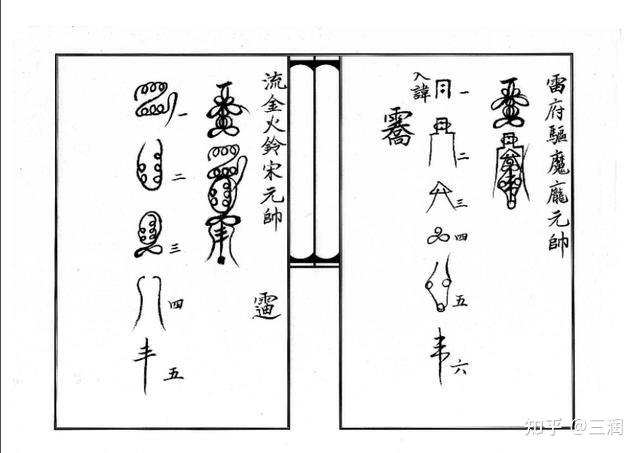 雷府驅魔龐元帥
一
入諱
二
三
四
五
六
流金火鈴宋元帥
一
二
三
四
五
知乎 @三润